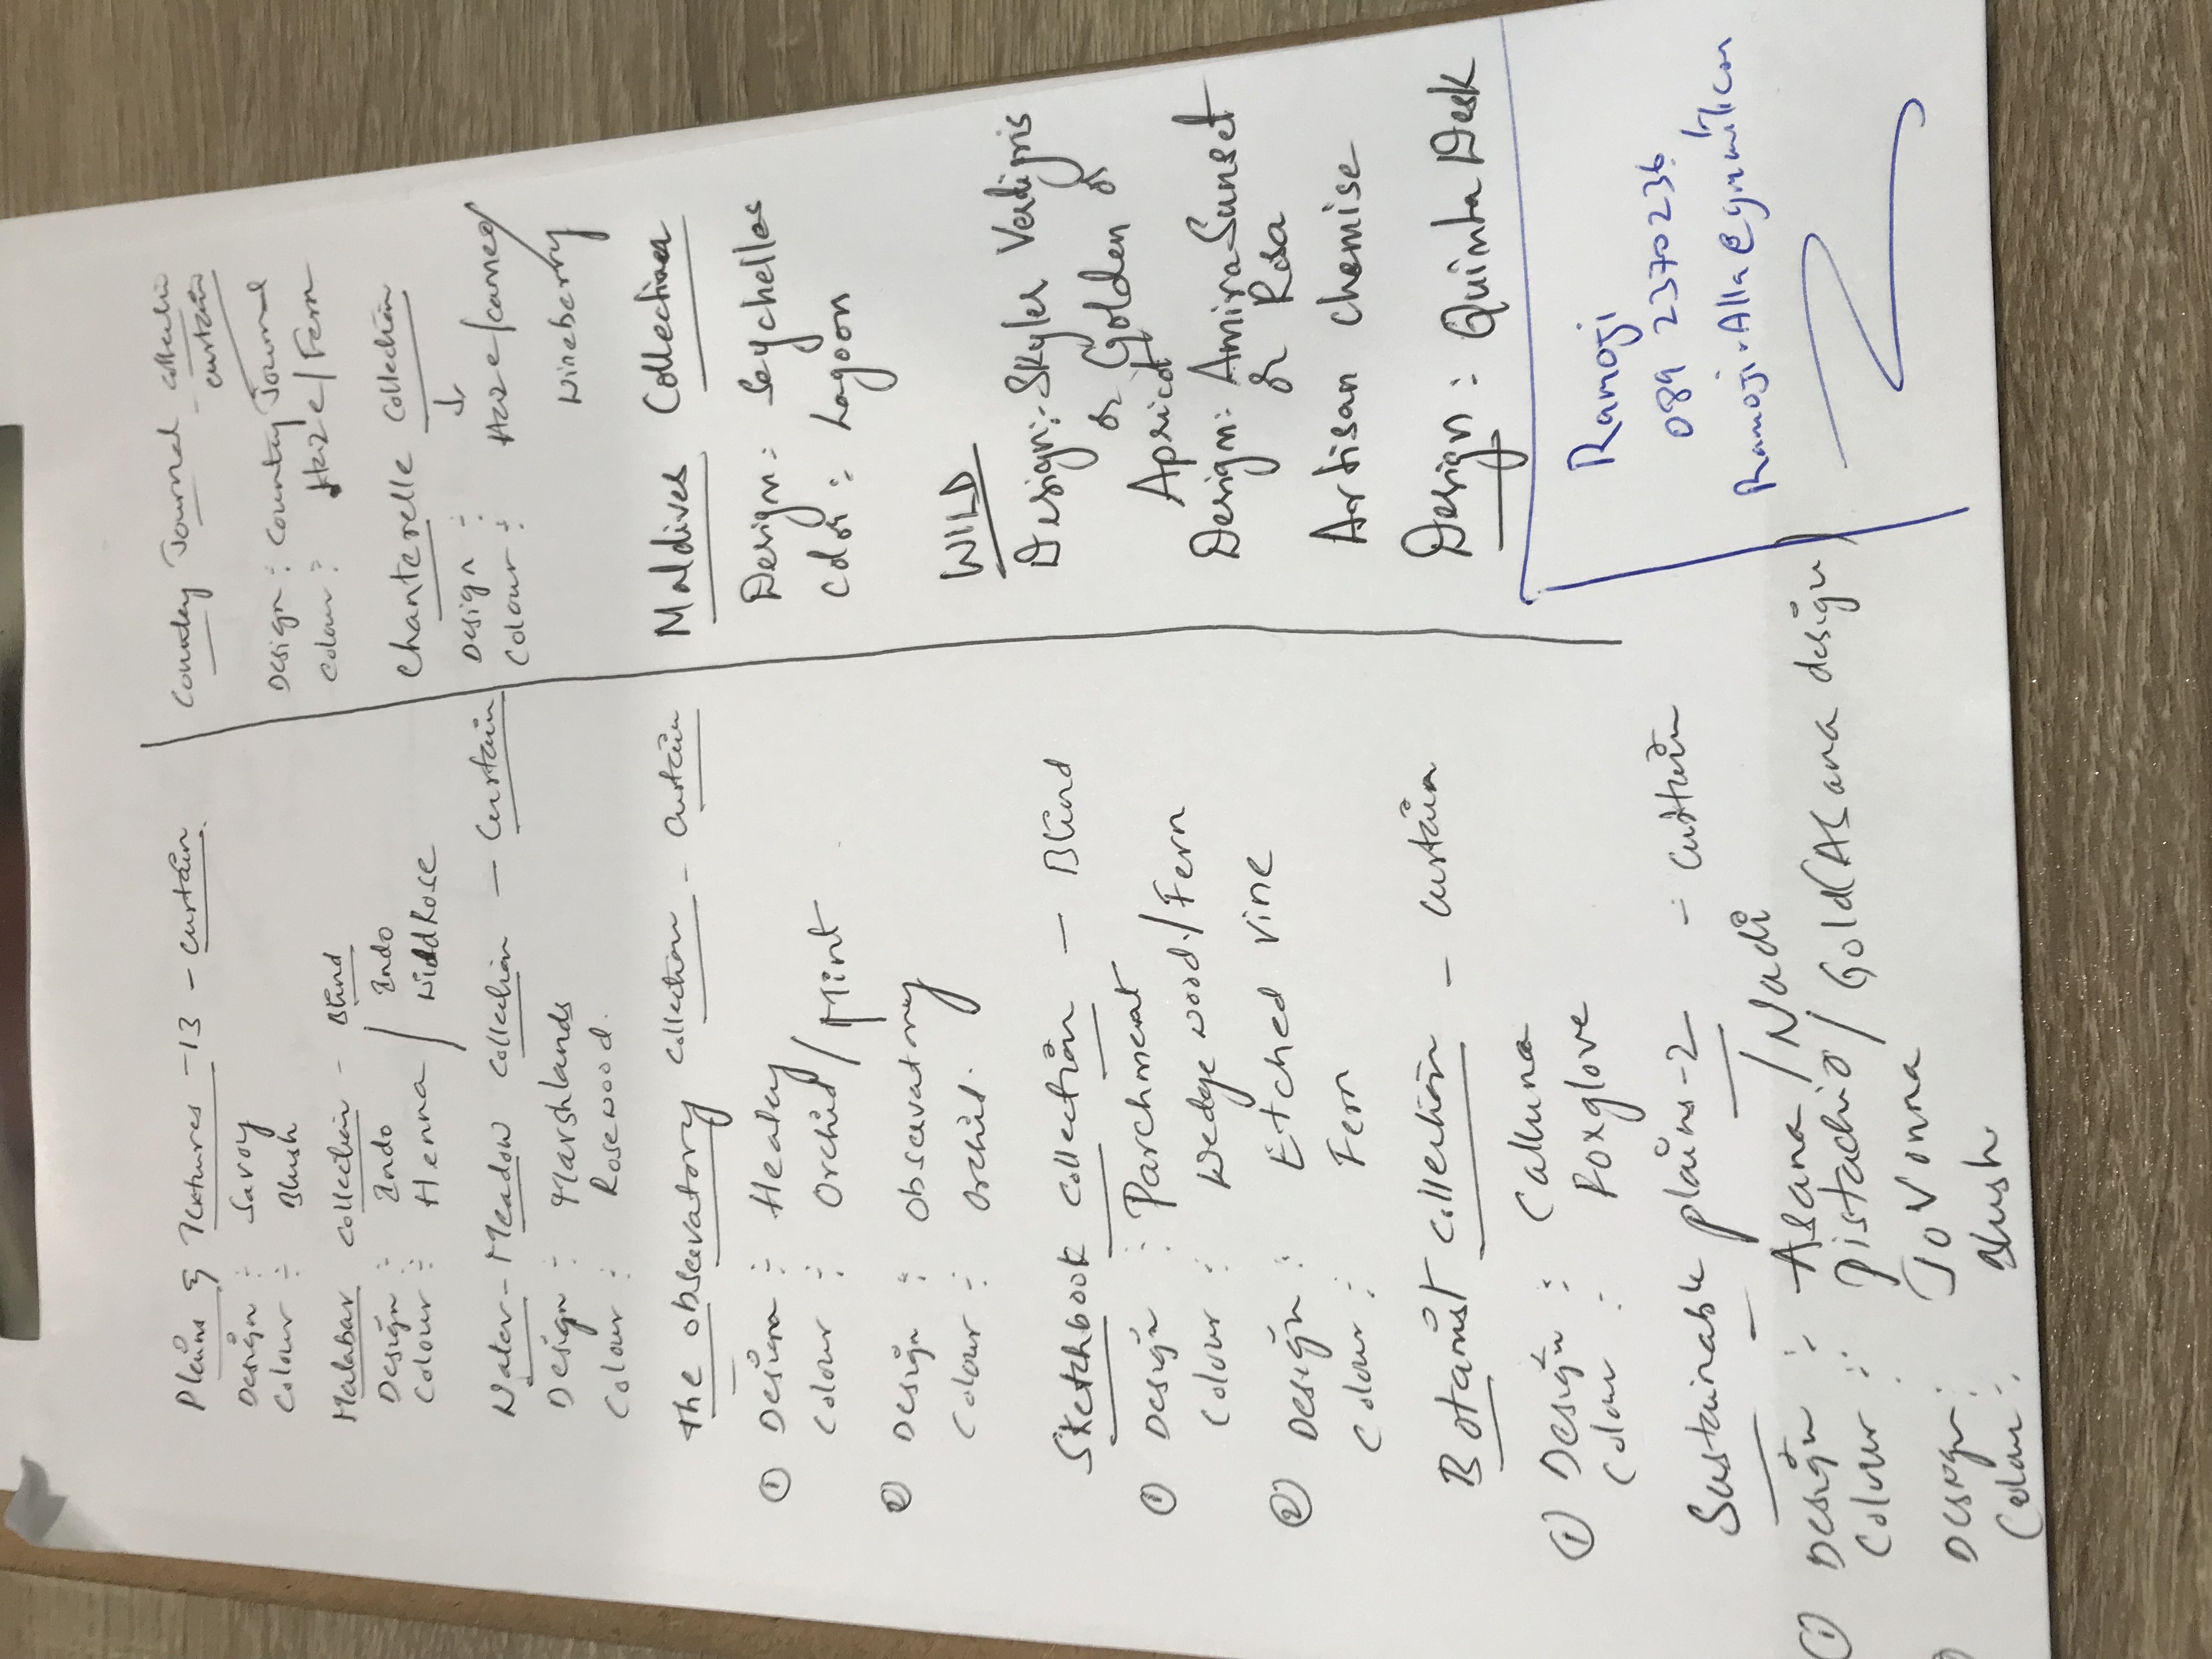 Plains & Textures - 13 - Curtain
Design : Savoy
Colour : Blush
Malabar Collection - Blind
Design : Indo / Indo
Colour : Henna / Wildrose
Water-Meadow Collection - Curtain
Design : Marshlands
Colour : Rosewood.
The Observatory Collection - Curtain
① Design : Healey
Colour : Orchid / Mint
② Design : Observatory
Colour : Orchid.
Sketchbook Collection - Blind
① Design : Parchment
Colour : Wedgewood./Fern
② Design : Etched Vine
Colour : Fern
Botanist Collection - Curtain
① Design : Calluna
Colour : Foxglove
Sustainable plains-2 - Curtain
① Design : Asana / Nadi
Colour : Pistachio / Gold (Asana design)
Design : Jovonna
Colour : Blush
Country Journal - Collection
- curtain
Design : Country Journal
Colour : Haze / Fern
Chanterelle Collection
Design :
Colour : Haze / cameo /
Wineberry
Maldives Collection
Design : Seychelles
Color : Lagoon
WILD
Design : Skyler Verdigris
or Golden or
Apricot
Design : Amira Sunset
or Rosa
Artisan Chemise
Design : Quinta Desk
Ramoji
089 2370236
Ramoji.Alla@gmail.com